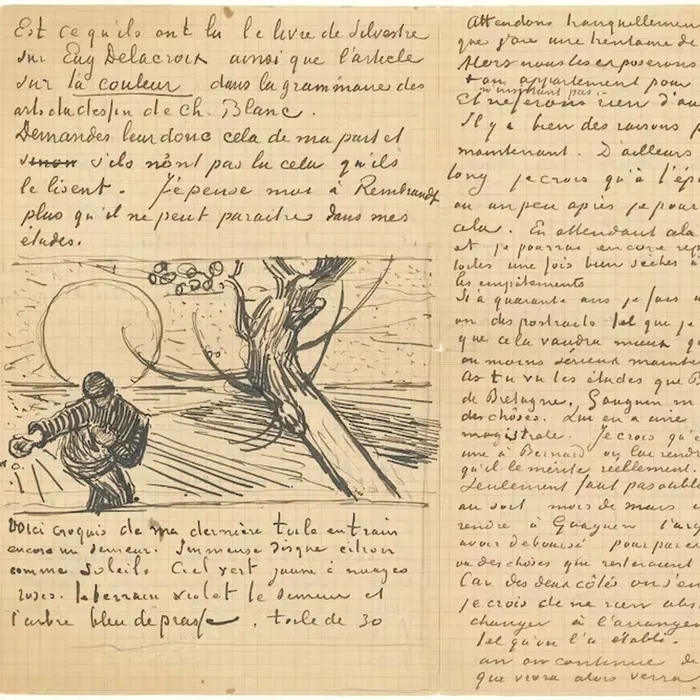 Est ce qu'ils ont lu le livre de Silvestre
sur Eug Delacroix ainsi que l'article
sur la couleur dans la grammaire des
arts du dessin de Ch. Blanc.
Demandes leur donc cela de ma part et
sinon s'ils n'ont pas lu cela qu'ils
le lisent. J'épense moi à Rembrandt
plus qu'il ne peut paraitre dans mes
études.
Voici croquis de ma dernière toile en train
encore un semeur. Immense disque citron
comme soleil. Ciel vert jaune à nuages
roses. le terrain violet le semeur et
l'arbre bleu de prusse. toile de 30
Attendons tranquillement
que j'aie une trentaine de
Alors nous les exposerons
ton appartement pour
n'insistant pas.
Et ne ferons rien d'au
Il y a bien des raisons p
maintenant. D'ailleurs
long je crois qu'à l'ép
ou un peu après je pour
cela. En attendant cela
et je pourrai encore rep
toiles une fois bien sèches à
les empâtements
Si à quarante ans je fais u
ou des portraits tel que je
que cela vaudra mieux q
ou moins sérieux mainte
As tu vu les études que B
de Bretagne, Gauguin m
des choses. Lui en a une
magistrale. Je crois qu'
une à Bernard ou lui rendr
qu'il le mérite réellement.
Seulement faut pas oublie
au soit mois de mars
rendre à Gauguin l'arg
avoir deboursé pour par
ou des choses que resteraient
Car des deux côtés on s'en
je crois de ne rien abs
changer à l'arrangem
tel qu'on l'a établi.
an on continue de
que vivra alors verra